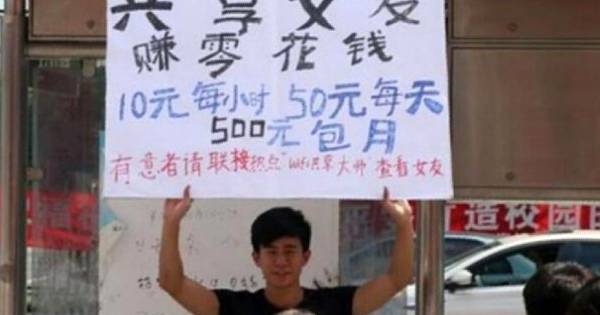 共享女友
赚零花钱
10元每小时 50元每天
500元包月
有意者请联接热点"WiFi共享大师"查看女友
造校园